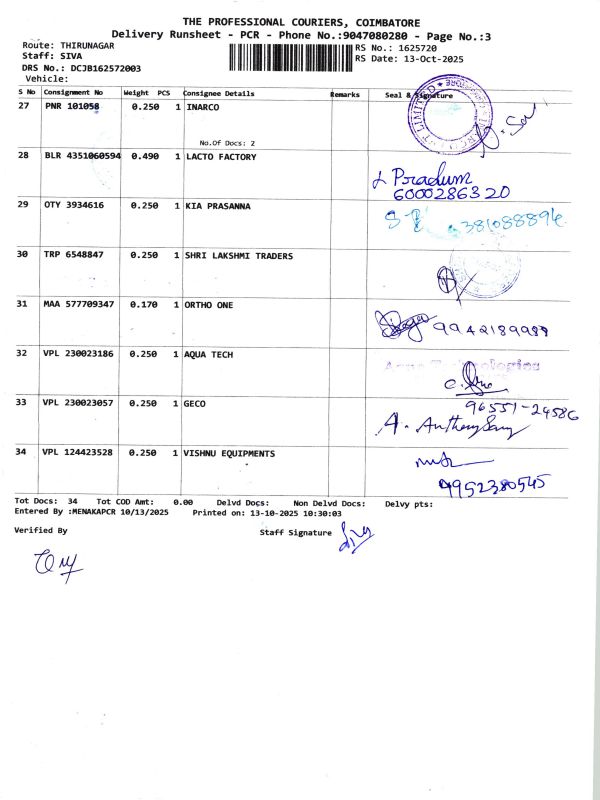 THE PROFESSIONAL COURIERS, COIMBATORE
Delivery Runsheet - PCR - Phone No.:9047080280 - Page No.:3
Route: THIRUNAGAR
Staff: SIVA
DRS No.: DCJB162572003
Vehicle:
RS No.: 1625720
RS Date: 13-Oct-2025
S No Consignment No Weight PCS Consignee Details Remarks Seal & Signature
27 PNR 101058 0.250 1 INARCO
No.Of Docs: 2
LIMITED
28 BLR 4351060594 0.490 1 LACTO FACTORY
Pradum
6000286320
29 OTY 3934616 0.250 1 KIA PRASANNA
30 TRP 6548847 0.250 1 SHRI LAKSHMI TRADERS
31 MAA 577709347 0.170 1 ORTHO ONE
9942189989
32 VPL 230023186 0.250 1 AQUA TECH
Aqua Technologies
33 VPL 230023057 0.250 1 GECO
96551-24586
A. Anthony Samy
34 VPL 124423528 0.250 1 VISHNU EQUIPMENTS
9952380545
Tot Docs: 34 Tot COD Amt: 0.00 Delvd Docs: Non Delvd Docs: Delvy pts:
Entered By :MENAKAPCR 10/13/2025 Printed on: 13-10-2025 10:30:03
Verified By
Staff Signature